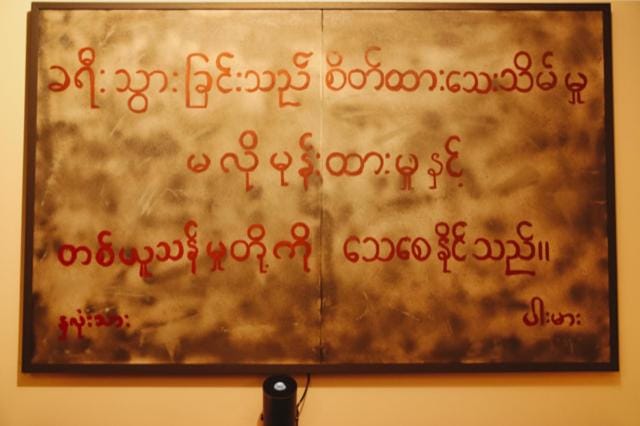 ခရီးသွားခြင်းသည် စိတ်ထားသေးသိမ်မှု
မလိုမုန်းထားမှုနှင့်
တစ်ယူသန်မှုတို့ကို သေစေနိုင်သည်။
နှလုံးသား ပါးမား